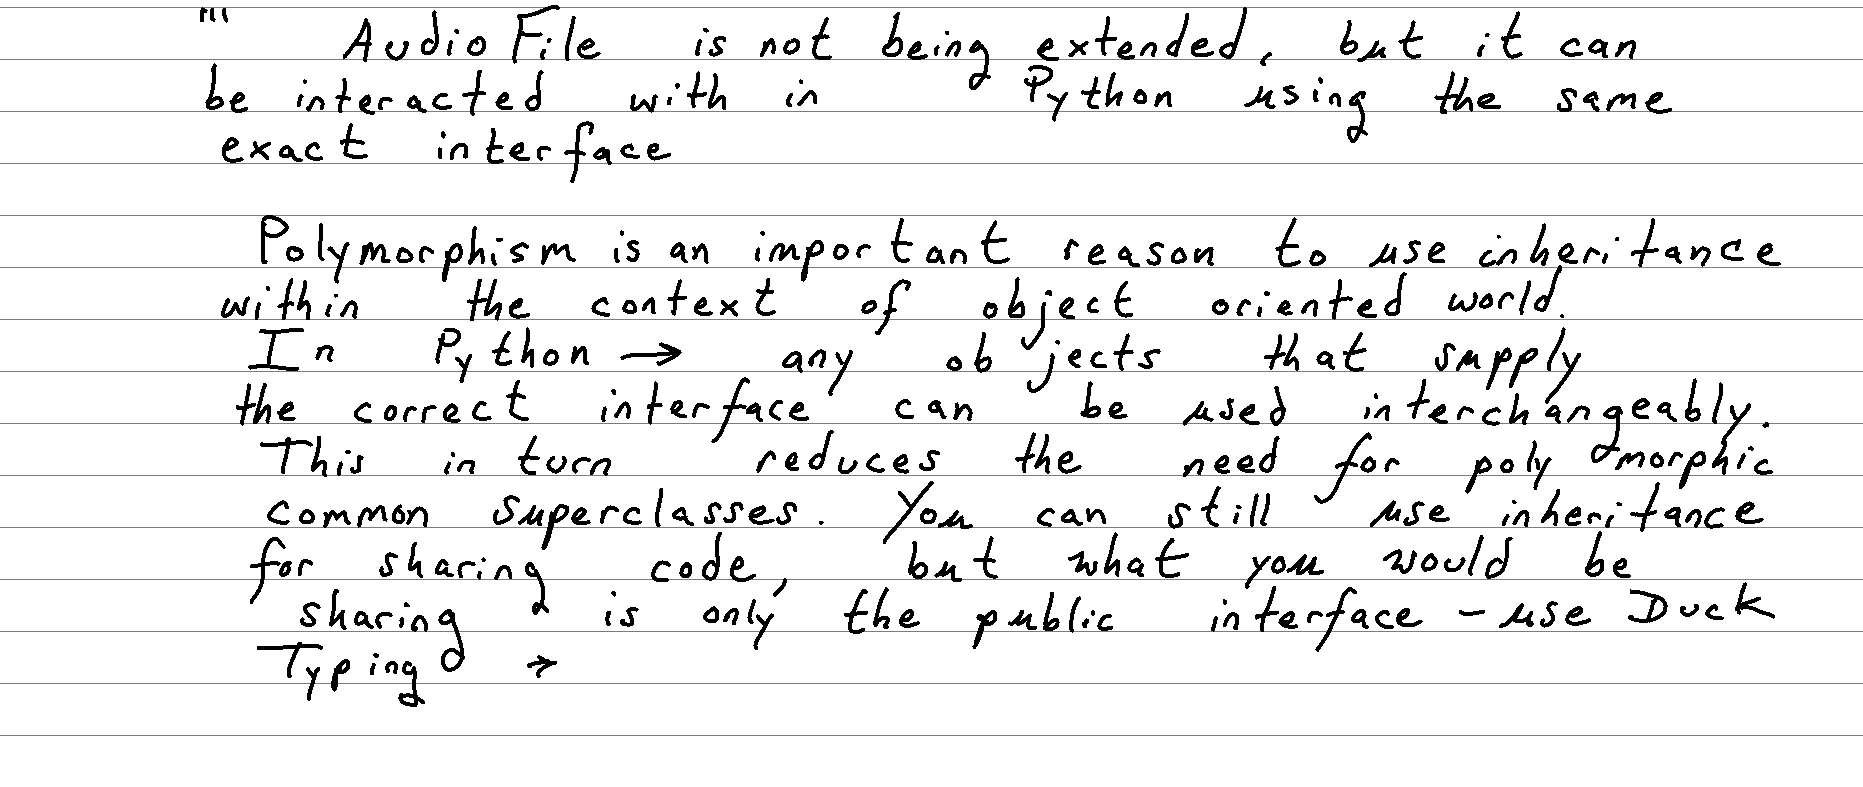 ''' AudioFile is not being extended, but it can
be interacted with in Python using the same
exact interface
Polymorphism is an important reason to use inheritance
within the context of object oriented world.
In Python → any objects that supply
the correct interface can be used interchangeably.
This in turn reduces the need for polymorphic
common superclasses. You can still use inheritance
for sharing code, but what you would be
sharing is only the public interface - use Duck
Typing →